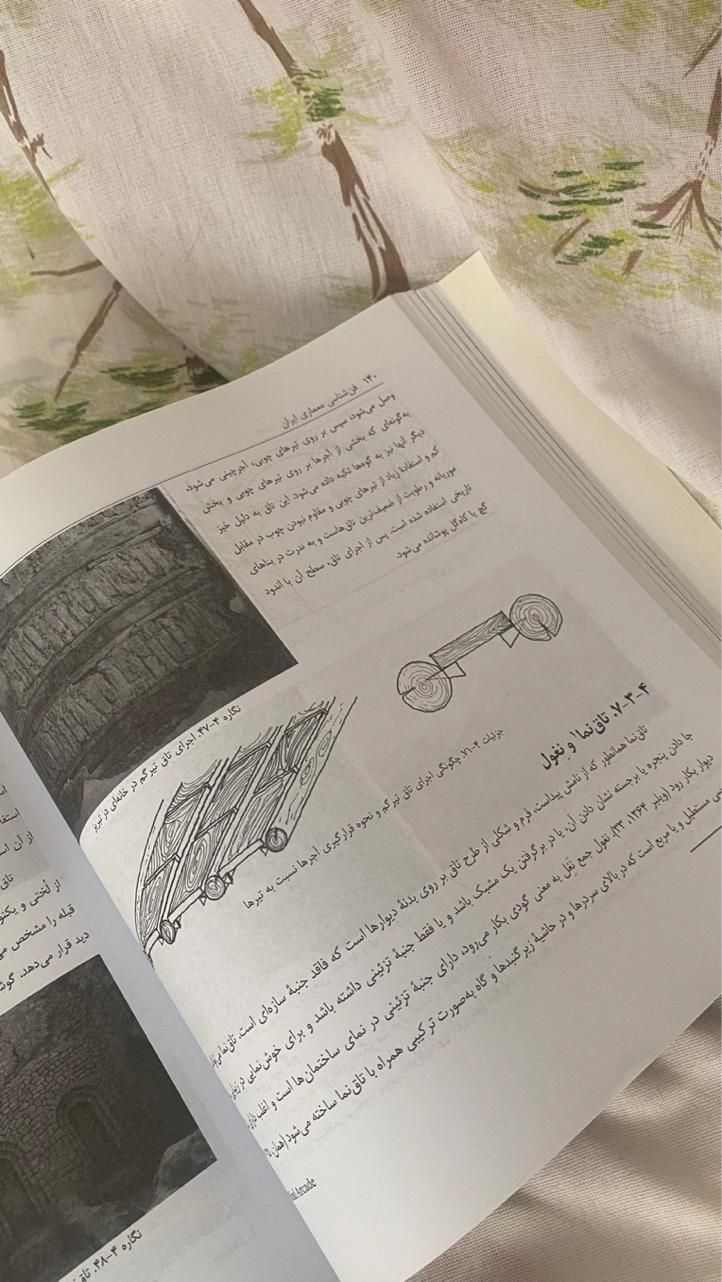 ۱۴۰ فن‌شناسی معماری ایران
وصل می‌شود، سپس بر روی تیرهای چوبی، آجرچینی می‌شود،
به‌گونه‌ای که بخشی از آجرها بر روی تیرهای چوبی و بخش
دیگر آنها نیز به گوه‌ها تکیه داده می‌شود. این تاق به دلیل خیز
کم و استفاده زیاد از تیرهای چوبی و مقاوم نبودن چوب در مقابل
موریانه و رطوبت از ضعیف‌ترین تاق‌هاست و به ندرت در بناهای
تاریخی استفاده شده است. پس از اجرای تاق، سطح آن با اندود
گچ یا کاه‌گل پوشانده می‌شود.
نگاره ۴-۴۷. اجرای تاق تیرگم در خانه‌ای در تبریز
جزئیات ۴-۷۱. چگونگی اجرای تاق تیرگم و نحوه قرارگیری آجرها نسبت به تیرها
۴-۳-۷. تاق‌نما۱ و نغول
تاق‌نما همانطور که از نامش پیداست، فرم و شکلی از طرح تاق بر روی بدنهٔ دیوارها است که فاقد جنبهٔ سازه‌ای است. تاق‌نما
جا دادن پنجره یا برجسته نشان دادن آن، یا در برگرفتن یک مشبک باشد و یا فقط جنبهٔ تزئینی داشته باشد و برای خوش‌نمایی در
دیوار بکار رود (ویلبر ۱۳۶۴، ۲۳). نغول جمع نَغل به معنی گودی بکار می‌رود، دارای جنبهٔ تزئینی در نمای ساختمان‌ها است و اغلب دارای
مستطیل و یا مربع است که در بالای سردرها و در حاشیهٔ زیر گنبدها و گاه به‌صورت ترکیبی همراه با تاق‌نما ساخته می‌شود (همان
Arcade
از آن
تاق
از لُختی و
قبله را مشخص
دید قرار می‌دهد.
نگاره ۴-۴۸.